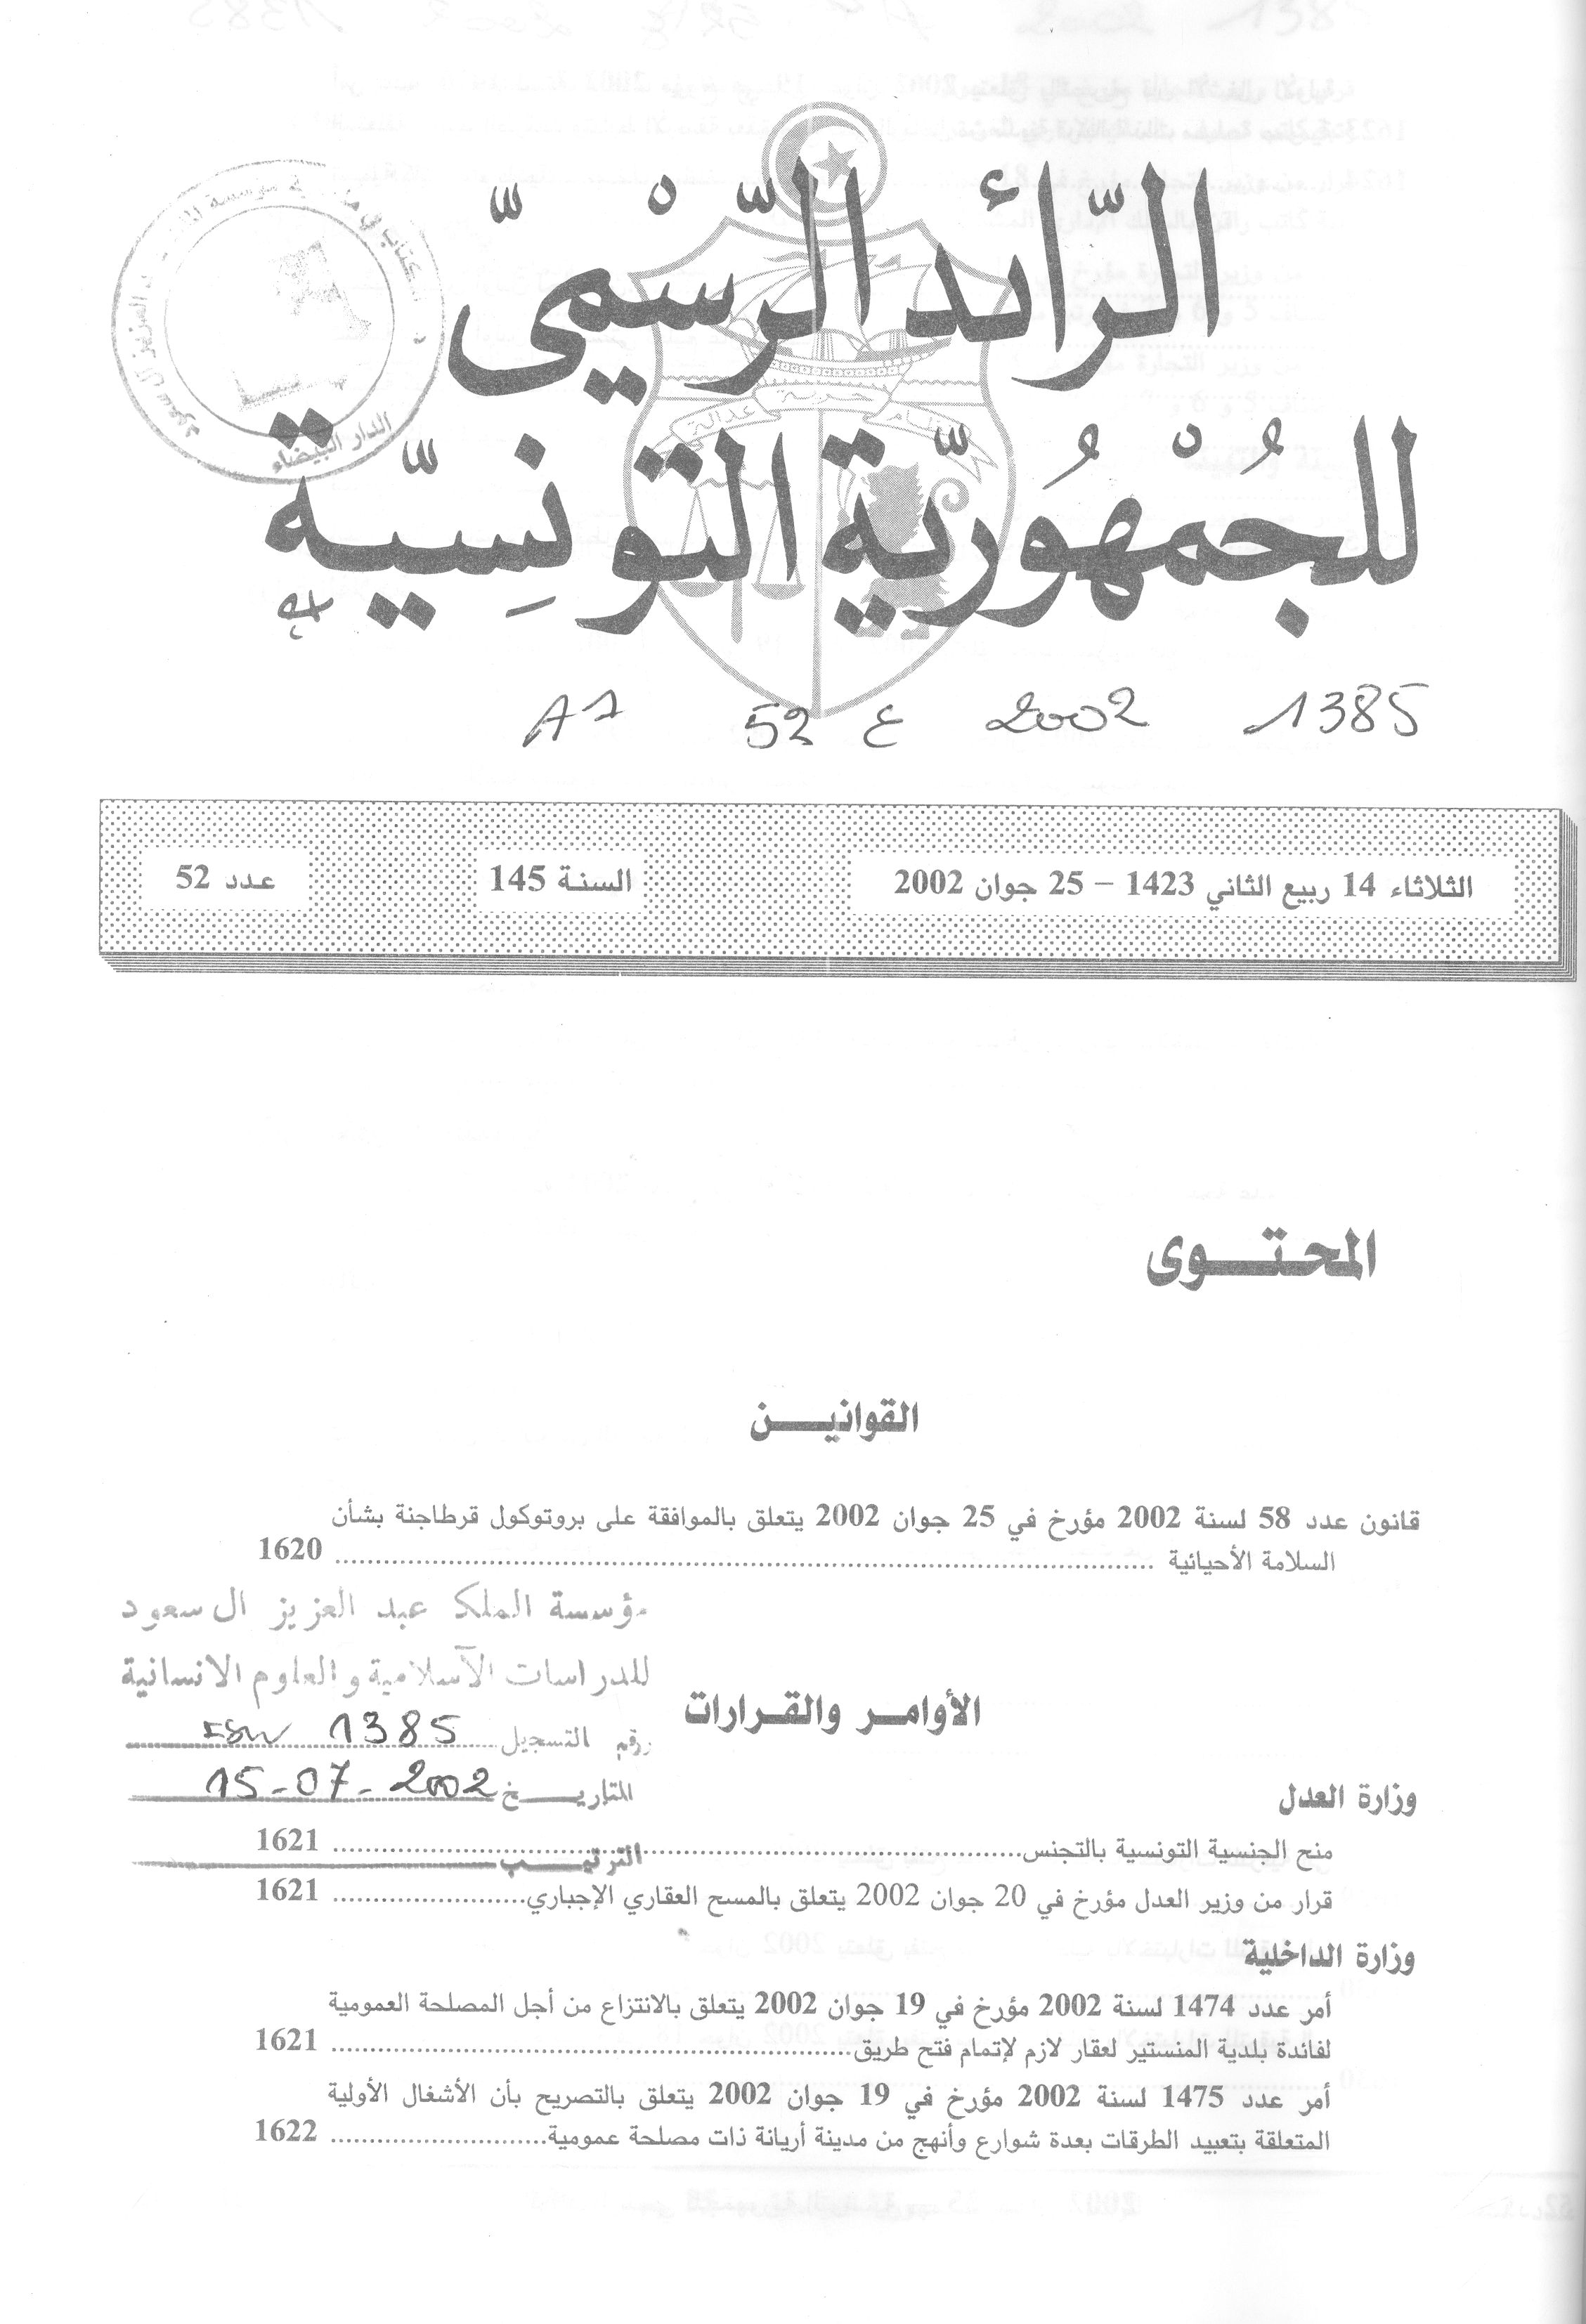 الرّائد الرّسْميّ
للجُمْهُوريّة التّونِسيّة
عدالة حرية نظام
1385 2002 ع 52 A1
الثلاثاء 14 ربيع الثاني 1423 – 25 جوان 2002 السنة 145 عدد 52
المحتوى
القوانين
قانون عدد 58 لسنة 2002 مؤرخ في 25 جوان 2002 يتعلق بالموافقة على بروتوكول قرطاجنة بشأن
السلامة الأحيائية ........ 1620
مؤسسة الملك عبد العزيز ال سعود
للدراسات الآسلامية والعلوم الانسانية
الأوامر والقرارات
رقم التسجيل 1385
التاريخ 15-07-2002
الترتيب
وزارة العدل
منح الجنسية التونسية بالتجنس........ 1621
قرار من وزير العدل مؤرخ في 20 جوان 2002 يتعلق بالمسح العقاري الإجباري........ 1621
وزارة الداخلية
أمر عدد 1474 لسنة 2002 مؤرخ في 19 جوان 2002 يتعلق بالانتزاع من أجل المصلحة العمومية
لفائدة بلدية المنستير لعقار لازم لإتمام فتح طريق........ 1621
أمر عدد 1475 لسنة 2002 مؤرخ في 19 جوان 2002 يتعلق بالتصريح بأن الأشغال الأولية
المتعلقة بتعبيد الطرقات بعدة شوارع وأنهج من مدينة أريانة ذات مصلحة عمومية........ 1622
الدار البيضاء